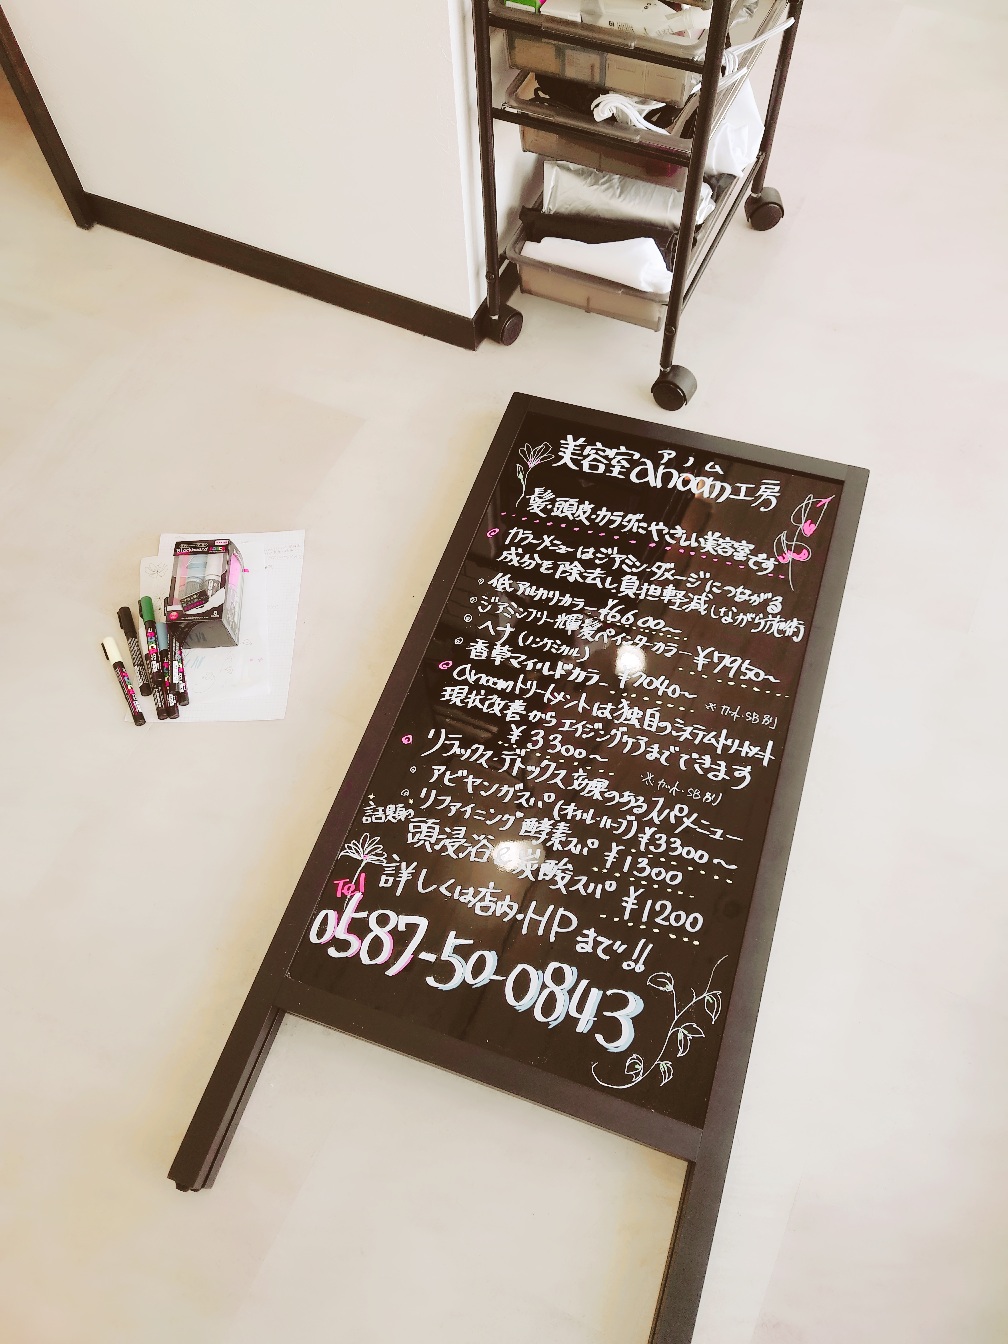 アノム
美容室anoam工房
髪・頭皮・カラダにやさしい美容室です
カラーメニューはジアミン・ダメージにつながる
成分を除去し負担軽減しながら施術
低アルカリカラー ¥6600~
ジアミンフリー輝髪ペインターカラー ¥7950~
ヘナ(ノンケミカル)
香草マイルドカラー ¥7040~
※カット・SB別
anoamトリートメントは独自のシステムトリートメント
現状改善からエイジングケアまでできます
¥3300~
※カット・SB別
リラックス・デトックス効果のあるスパメニュー
アビヤンガスパ(オイル・ハーブ) ¥3300~
リファイニング酵素スパ ¥1300
話題の
頭浸浴 炭酸スパ ¥1200
詳しくは店内・HPまで!!
Tel
0587-50-0843
Blackboard